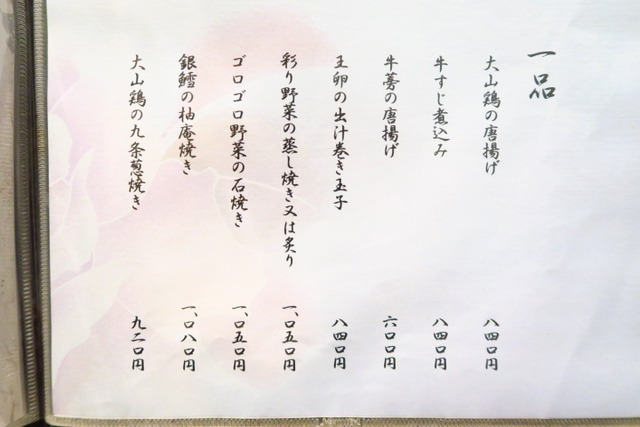 一品
大山鶏の唐揚げ 八四〇円
牛すじ煮込み 八四〇円
牛蒡の唐揚げ 六〇〇円
王卵の出汁巻き玉子 八四〇円
彩り野菜の蒸し焼き又は炙り 一、〇五〇円
ゴロゴロ野菜の石焼き 一、〇五〇円
銀鱈の柚庵焼き 一、〇八〇円
大山鶏の九条葱焼き 九二〇円